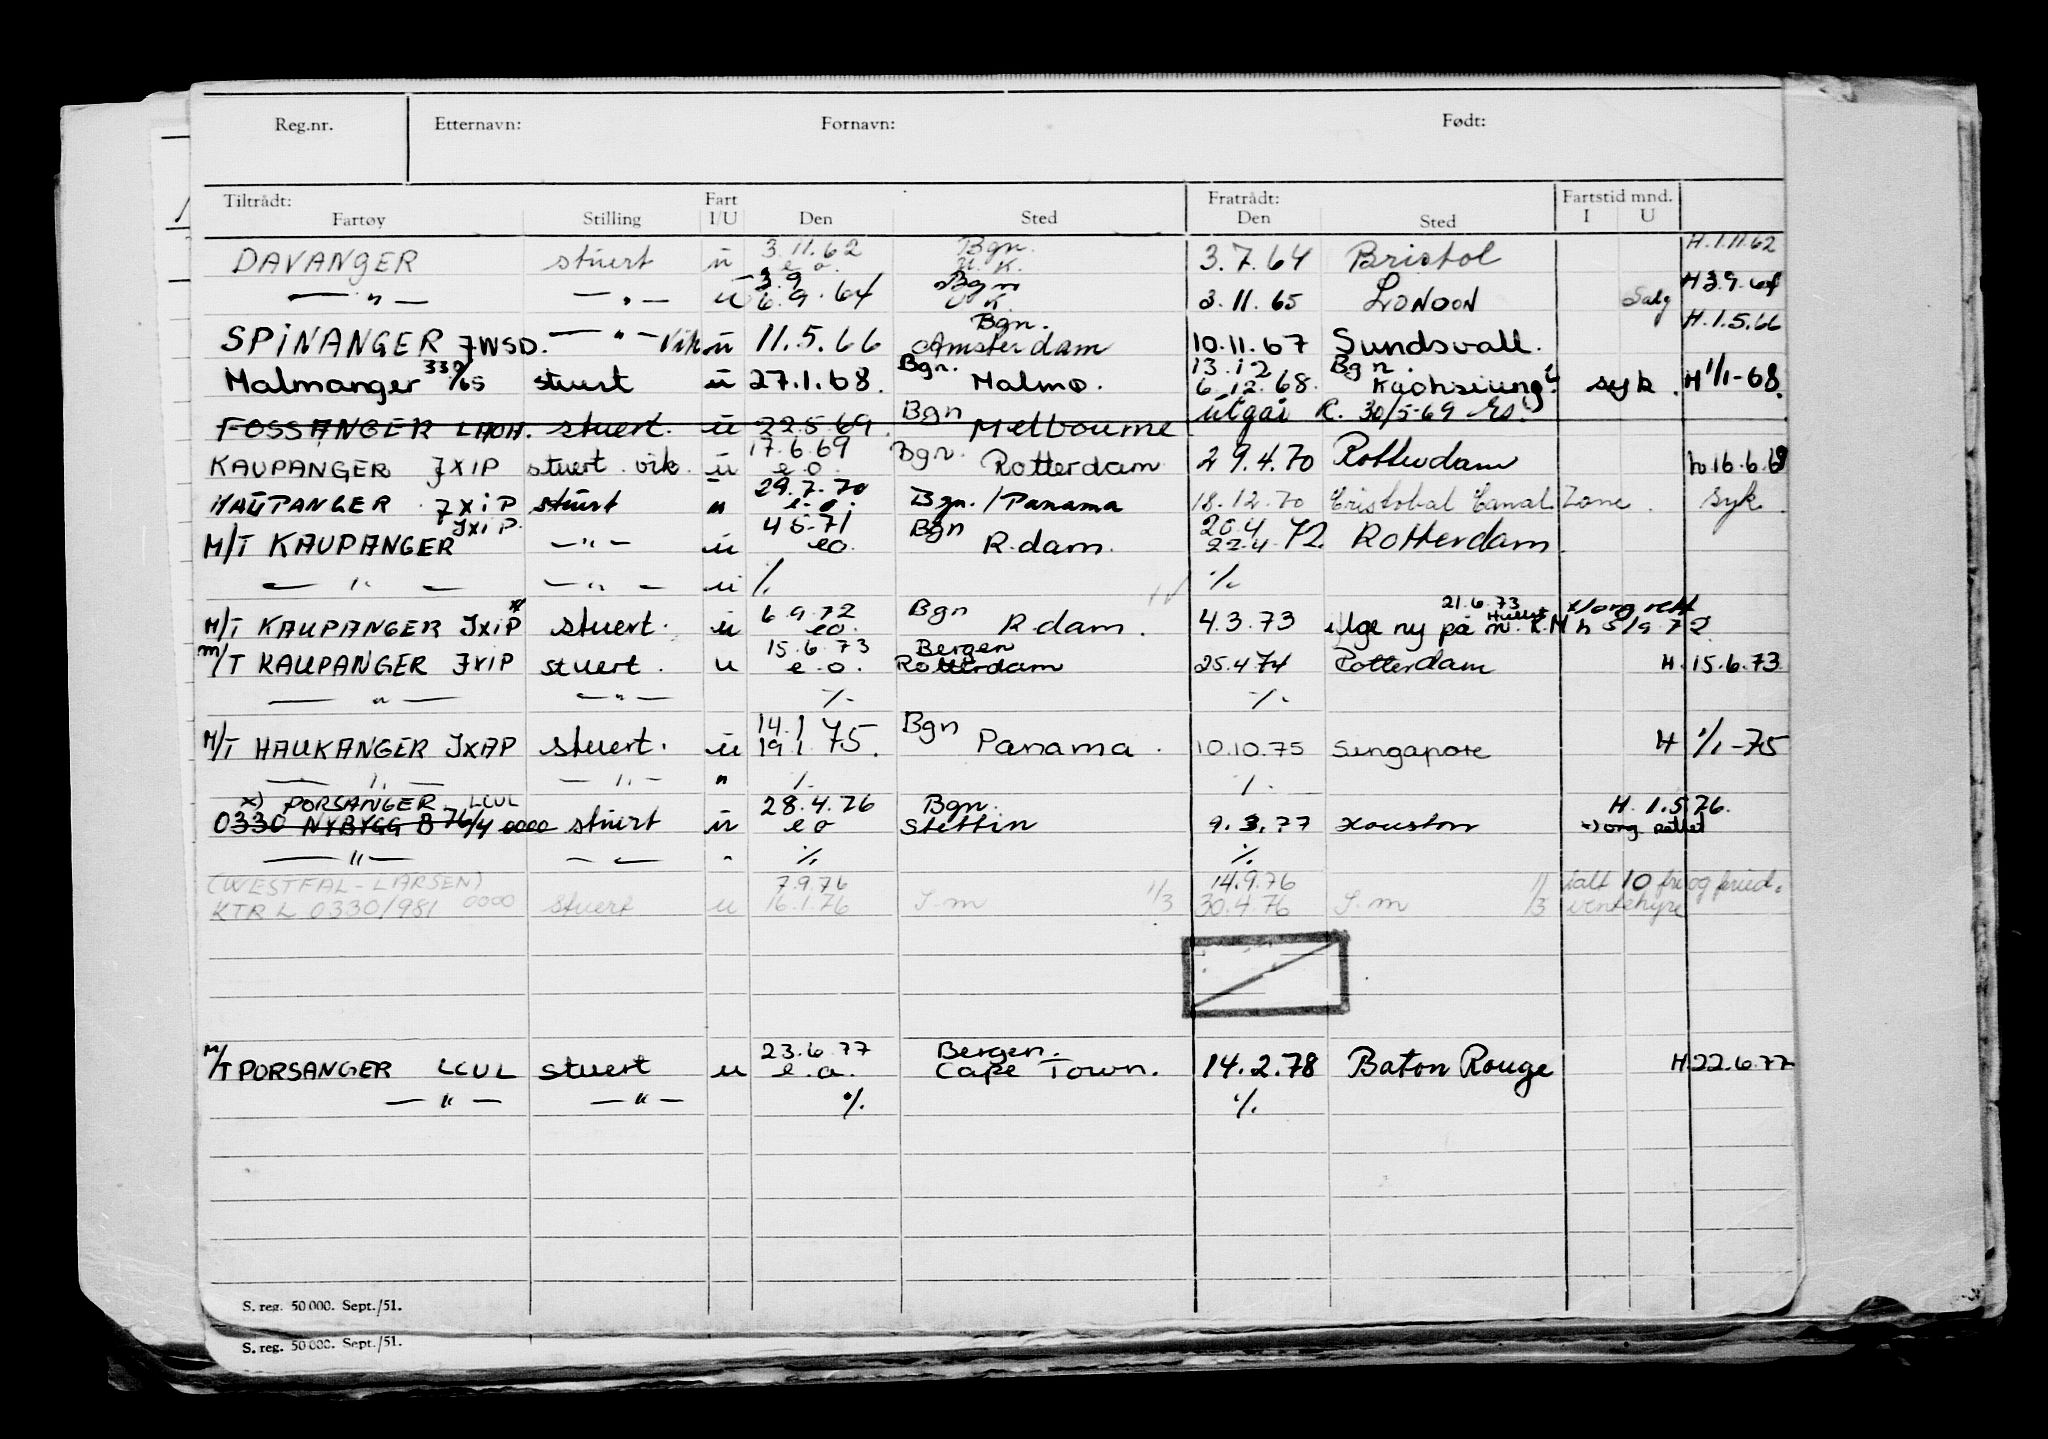 Reg.nr. Etternavn: Fornavn: Født:
Tiltrådt: Fart Fratrådt: Fartstid mnd.
Fartøy Stilling I/U Den Sted Den Sted I U
3.11.62 Bgn. H.1.11.62
DAVANGER stuert u e.o. U.K. 3.7.64 Bristol
3.9 Bgn H 3.9.64
— " — — " — u 6.9.64 U K 3.11.65 LONDON Salg
Bgn. H.1.5.66
SPINANGER JWSD. — " — vik u 11.5.66 Amsterdam 10.11.67 Sundsvall.
330/65 Bgn. 13.12 Bgn.
Malmanger stuert u 27.1.68. Malmø. 6.12.68. Kaohsiung syk. H 1/1-68.
Bgn utgår R. 30/5-69
FOSSANGER LHOH. stuert. u 22.5.69. Melbourne
17.6.69 Bgn.
KAUPANGER JXIP stuert vik. u e.o. Rotterdam 29.4.70 Rotterdam h.16.6.69
29.7.70
KAUPANGER JXIP stuert u e.o. Bgn./Panama 18.12.70 Cristobal Canal Zone. Syk.
JXIP. 4.5.71 Bgn 20.4
M/T KAUPANGER — " — u eo. R.dam. 22.4.72. Rotterdam.
— " — — " — u ·/. ·/.
x) 6.9.72 Bgn 21.6.73 x) org rett
M/T KAUPANGER JXIP stuert. u eo. R.dam. 4.3.73 ny på m. R.M h 5/9 72.
15.6.73 Bergen
M/T KAUPANGER JXIP stuert. u e.o. Rotterdam 25.4.74 Rotterdam H. 15.6.73
— " — — " — ·/. ·/.
14.1 Bgn
M/T HAUKANGER JXAP stuert. u 19.1.75. Panama. 10.10.75 Singapore H 1/1-75
— " — — " — " ·/. ·/.
x) PORSANGER LCUL 28.4.76 Bgn. H. 1.5.76.
0330 NYBYGG B 76/4 0000 stuert u e o Stettin 9.3.77 Houston x) org rettet
— " — — — " ·/. ·/.
(WESTFAL-LARSEN) 7.9.76 14.9.76 ialt 10 fri og fried.
KTR L 0330/981 0000 stuert u 16.1.76 S.m 1/3 30.4.76 S.m 1/3 ventehyre
23.6.77 Bergen.
M/T PORSANGER LCUL stuert u e.o. Cape Town. 14.2.78 Baton Rouge H.22.6.77
— " — — " — ·/. ·/.
S. reg. 50 000. Sept./51.
S. reg. 50 000. Sept./51.